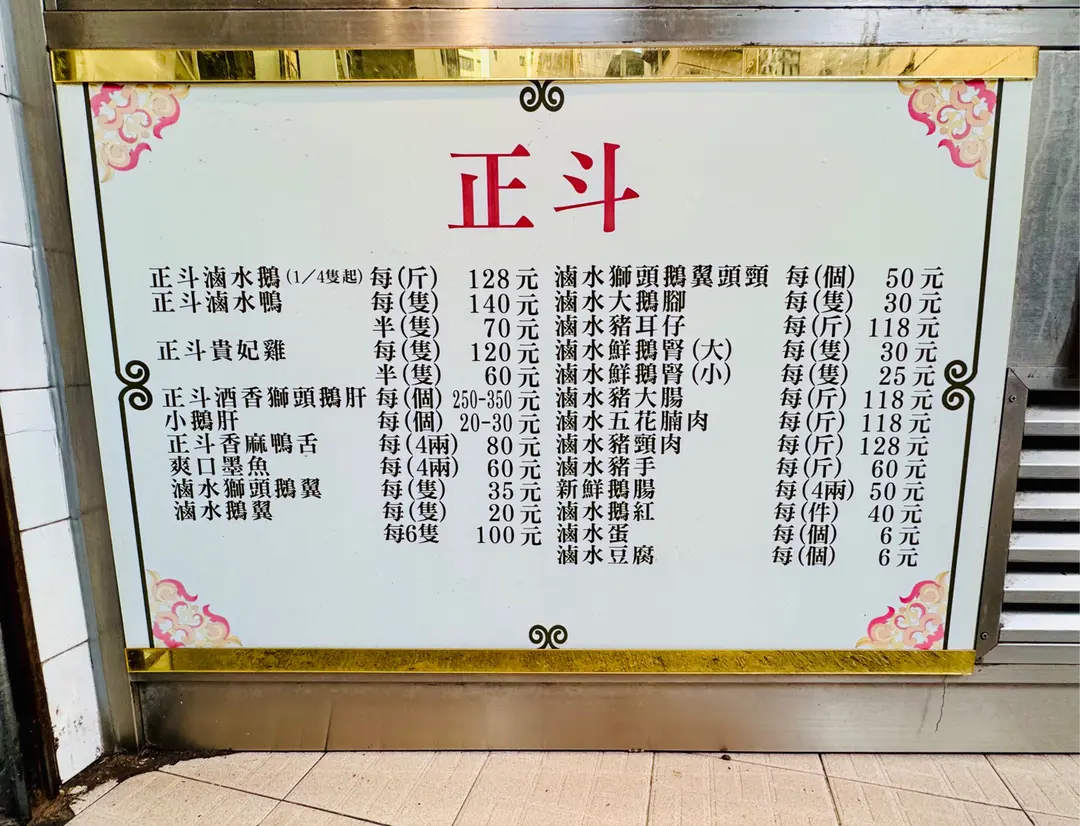 正斗
正斗滷水鵝(1/4隻起) 每(斤) 128元
正斗滷水鴨 每(隻) 140元
半(隻) 70元
正斗貴妃雞 每(隻) 120元
半(隻) 60元
正斗酒香獅頭鵝肝 每(個) 250-350元
小鵝肝 每(個) 20-30元
正斗香麻鴨舌 每(4兩) 80元
爽口墨魚 每(4兩) 60元
滷水獅頭鵝翼 每(隻) 35元
滷水鵝翼 每(隻) 20元
每6隻 100元
滷水獅頭鵝翼頭頸 每(個) 50元
滷水大鵝腳 每(隻) 30元
滷水豬耳仔 每(斤) 118元
滷水鮮鵝腎(大) 每(隻) 30元
滷水鮮鵝腎(小) 每(隻) 25元
滷水豬大腸 每(斤) 118元
滷水五花腩肉 每(斤) 118元
滷水豬頸肉 每(斤) 128元
滷水豬手 每(斤) 60元
新鮮鵝腸 每(4兩) 50元
滷水鵝紅 每(件) 40元
滷水蛋 每(個) 6元
滷水豆腐 每(個) 6元